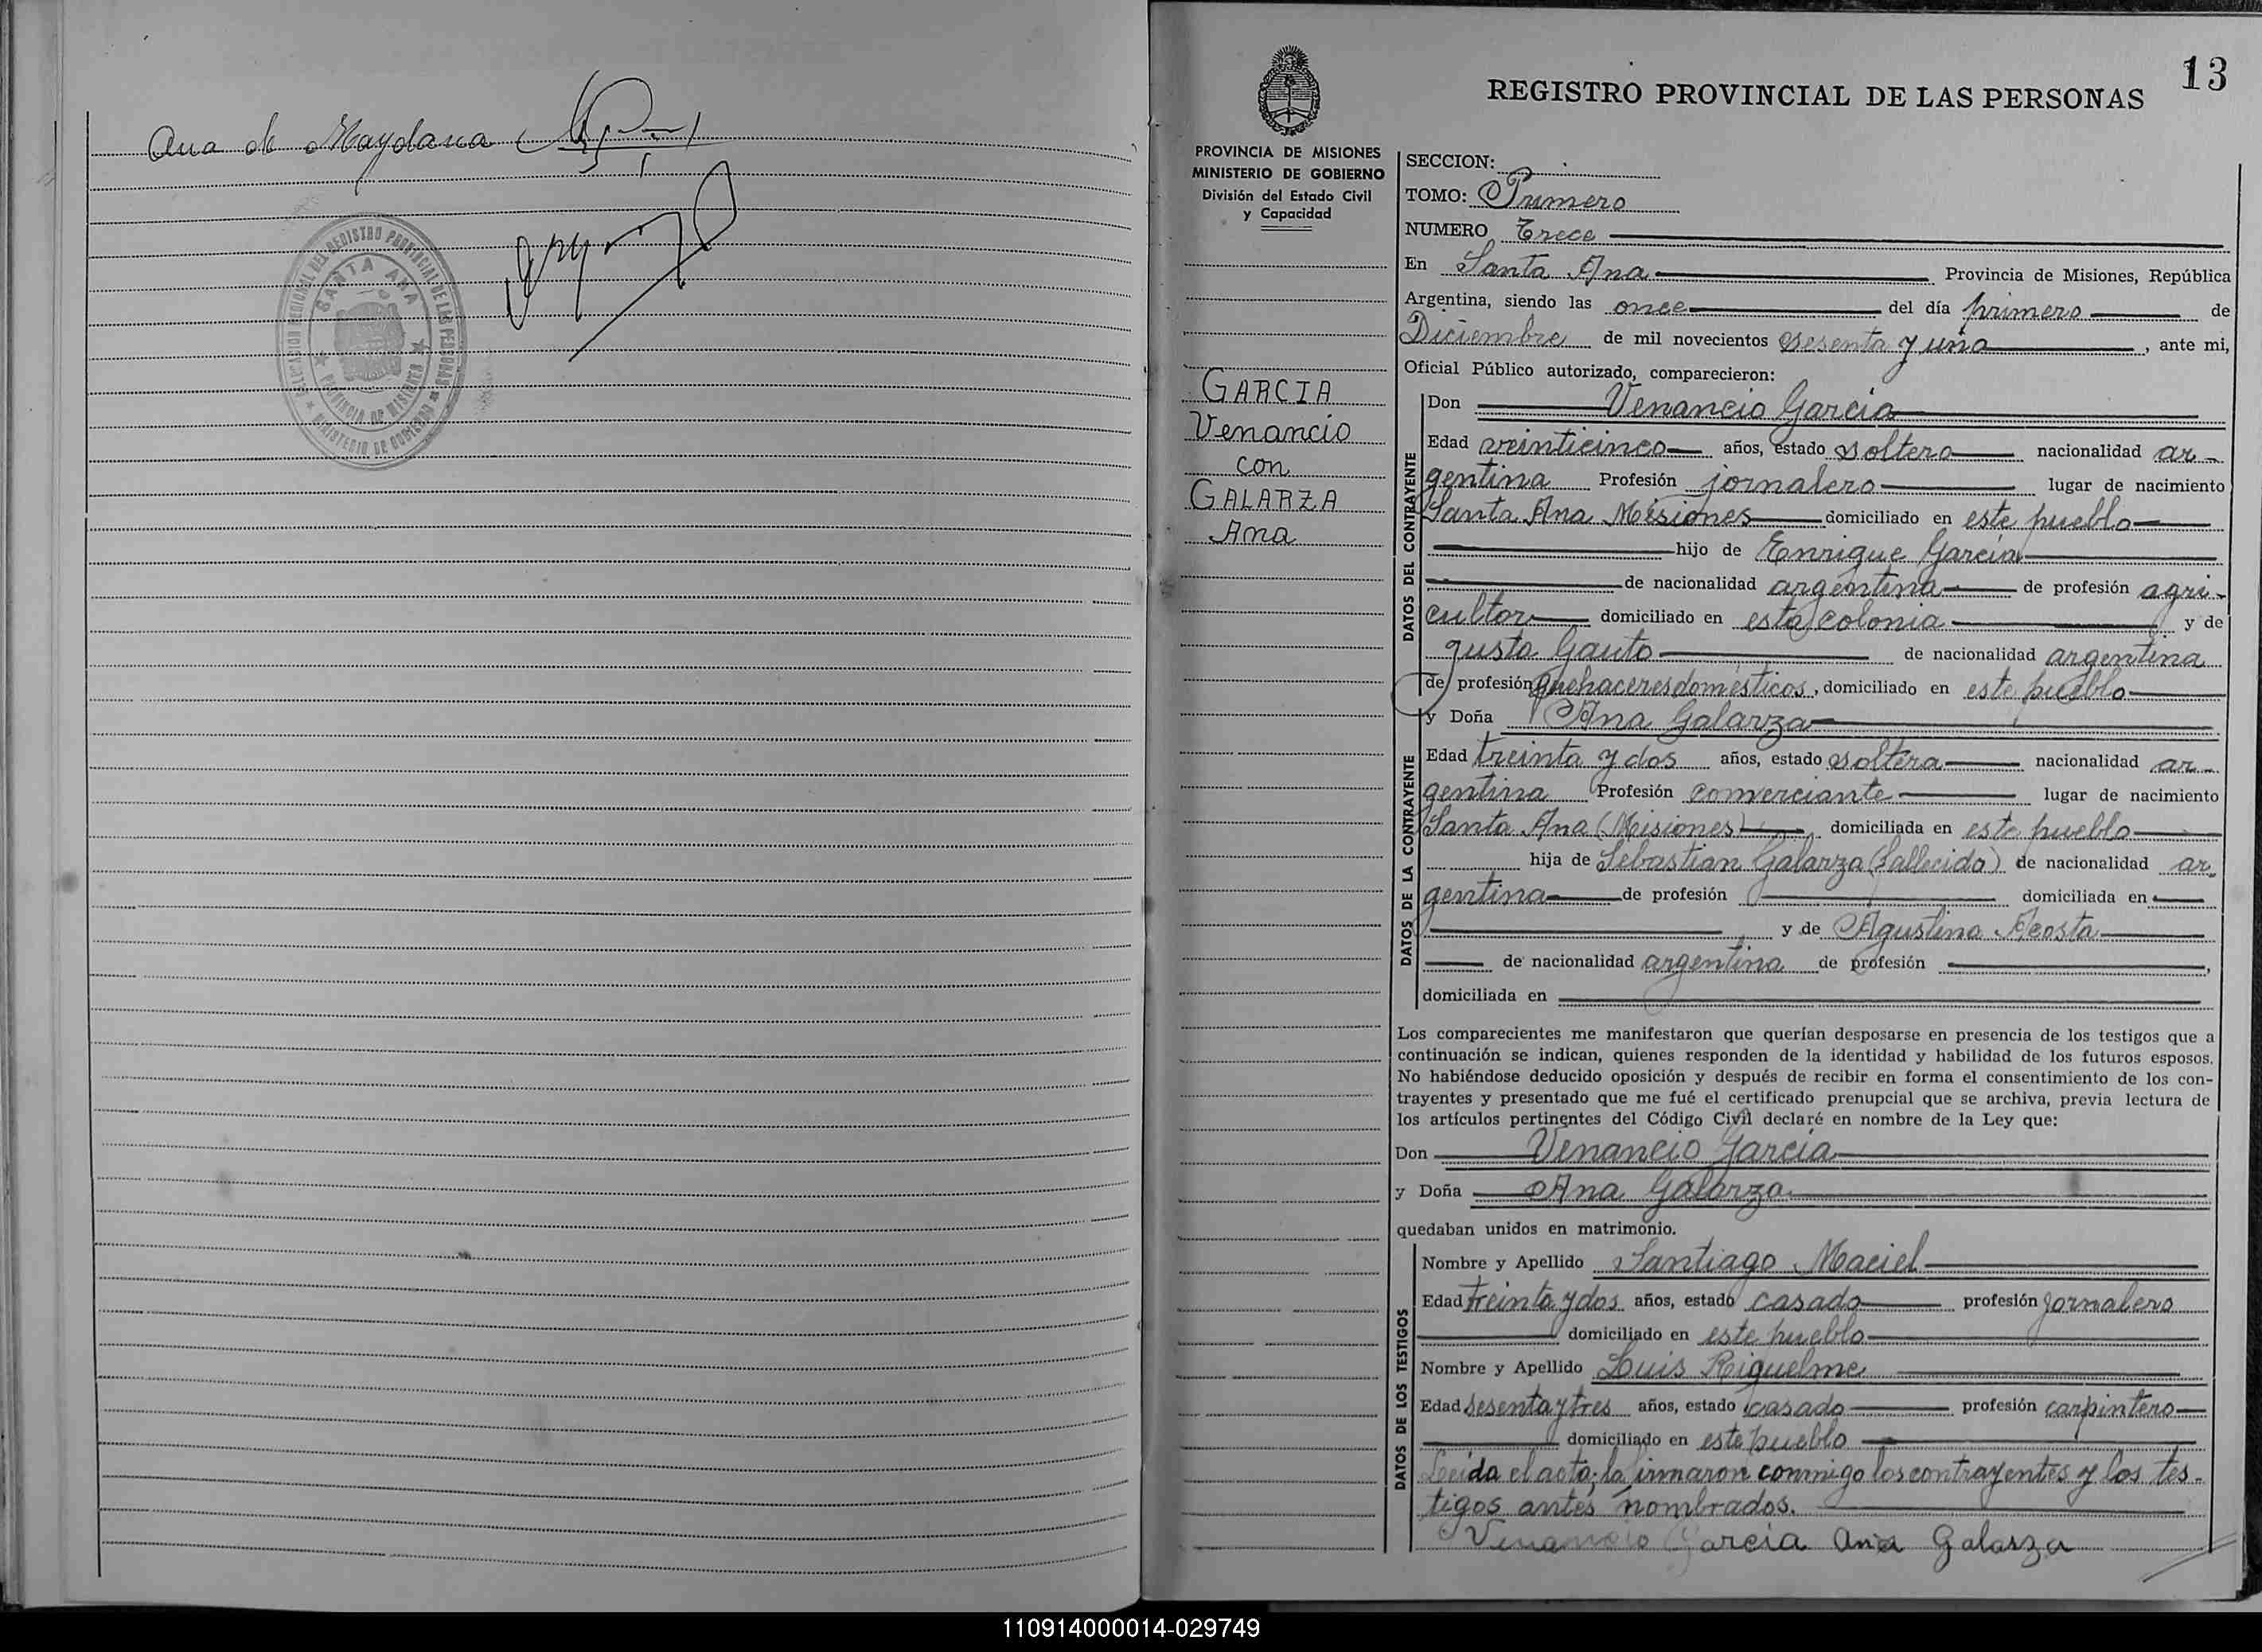 Ana de Maydana
DELEGACION REGIONAL DEL REGISTRO PROVINCIAL DE LAS PERSONAS
SANTA ANA
PROVINCIA DE MISIONES
MINISTERIO DE GOBIERNO
13
REGISTRO PROVINCIAL DE LAS PERSONAS
PROVINCIA DE MISIONES
MINISTERIO DE GOBIERNO
División del Estado Civil
y Capacidad
GARCIA
Venancio
con
GALARZA
Ana
SECCION:
TOMO: Primero
NUMERO Trece
En Santa Ana Provincia de Misiones, República
Argentina, siendo las once del día primero de
Diciembre de mil novecientos sesenta y uno, ante mi,
Oficial Público autorizado, comparecieron:
DATOS DEL CONTRAYENTE
Don Venancio García
Edad veinticinco años, estado soltero nacionalidad ar-
gentina Profesión jornalero lugar de nacimiento
Santa Ana Misiones domiciliado en este pueblo
hijo de Enrique García
de nacionalidad argentina de profesión agri-
cultor domiciliado en esta colonia y de
Justa Gauto de nacionalidad argentina
de profesión quehaceres domésticos, domiciliado en este pueblo
DATOS DE LA CONTRAYENTE
y Doña Ana Galarza
Edad treinta y dos años, estado soltera nacionalidad ar-
gentina Profesión comerciante lugar de nacimiento
Santa Ana (Misiones) domiciliada en este pueblo
hija de Sebastian Galarza (fallecido) de nacionalidad ar
gentina de profesión domiciliada en
y de Agustina Acosta
de nacionalidad argentina de profesión ,
domiciliada en
Los comparecientes me manifestaron que querían desposarse en presencia de los testigos que a
continuación se indican, quienes responden de la identidad y habilidad de los futuros esposos.
No habiéndose deducido oposición y después de recibir en forma el consentimiento de los con-
trayentes y presentado que me fué el certificado prenupcial que se archiva, previa lectura de
los artículos pertinentes del Código Civil declaré en nombre de la Ley que:
Don Venancio García
y Doña Ana Galarza
quedaban unidos en matrimonio.
DATOS DE LOS TESTIGOS
Nombre y Apellido Santiago Maciel
Edad treinta y dos años, estado casado profesión jornalero
domiciliado en este pueblo
Nombre y Apellido Luis Riquelme
Edad sesenta y tres años, estado casado profesión carpintero
domiciliado en este pueblo
Leída el acta, la firmaron conmigo los contrayentes y los tes-
tigos antes nombrados.
Venancio Garcia Ana Galarza
110914000014-029749